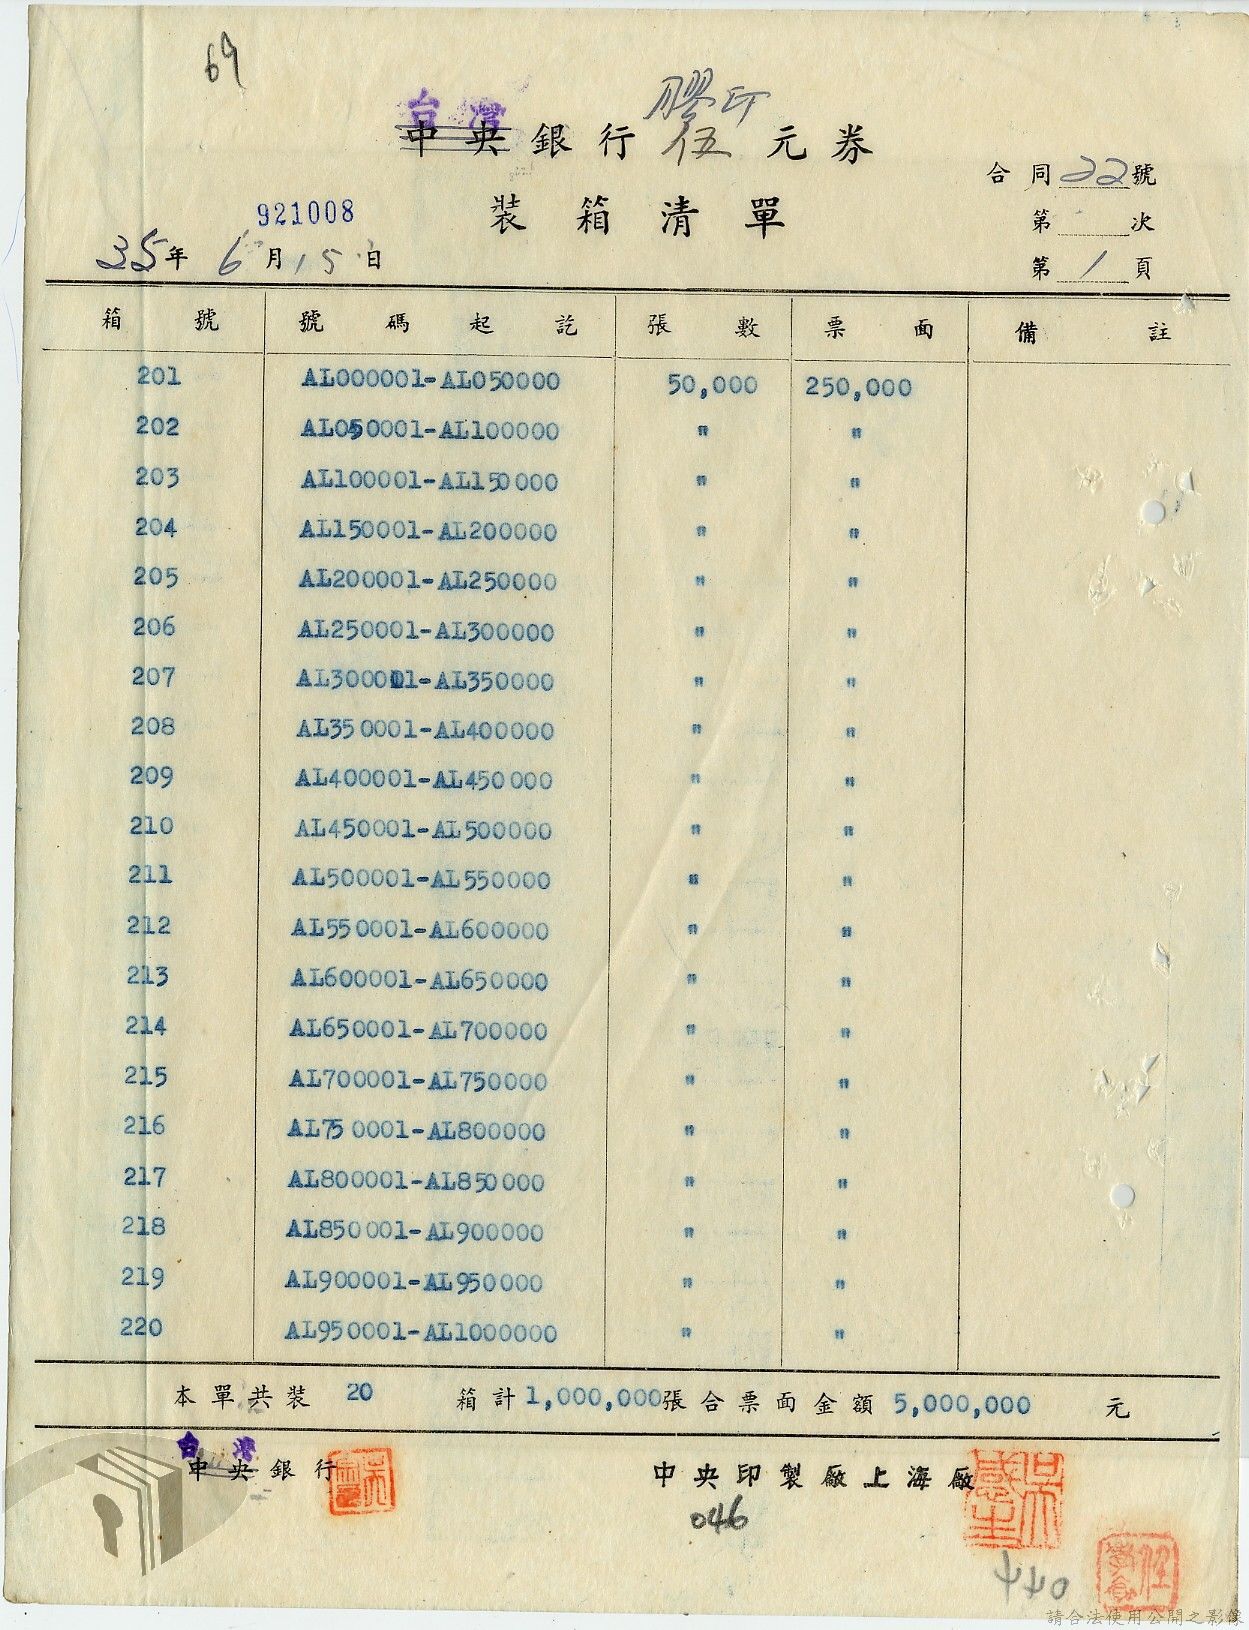 69
台灣 膠印
中央銀行 伍 元券
合同 22 號
921008
裝箱清單
第 次
35年 6月15日
第 1 頁
箱號 號碼起訖 張數 票面 備註
201 AL000001-AL050000 50,000 250,000
202 AL050001-AL100000 " "
203 AL100001-AL150000 " "
204 AL150001-AL200000 " "
205 AL200001-AL250000 " "
206 AL250001-AL300000 " "
207 AL300001-AL350000 " "
208 AL350001-AL400000 " "
209 AL400001-AL450000 " "
210 AL450001-AL500000 " "
211 AL500001-AL550000 " "
212 AL550001-AL600000 " "
213 AL600001-AL650000 " "
214 AL650001-AL700000 " "
215 AL700001-AL750000 " "
216 AL750001-AL800000 " "
217 AL800001-AL850000 " "
218 AL850001-AL900000 " "
219 AL900001-AL950000 " "
220 AL950001-AL1000000 " "
本單共裝 20 箱計1,000,000張合票面金額 5,000,000 元
台灣
中央銀行 中央印製廠上海廠
046
440
請合法使用公開之影像